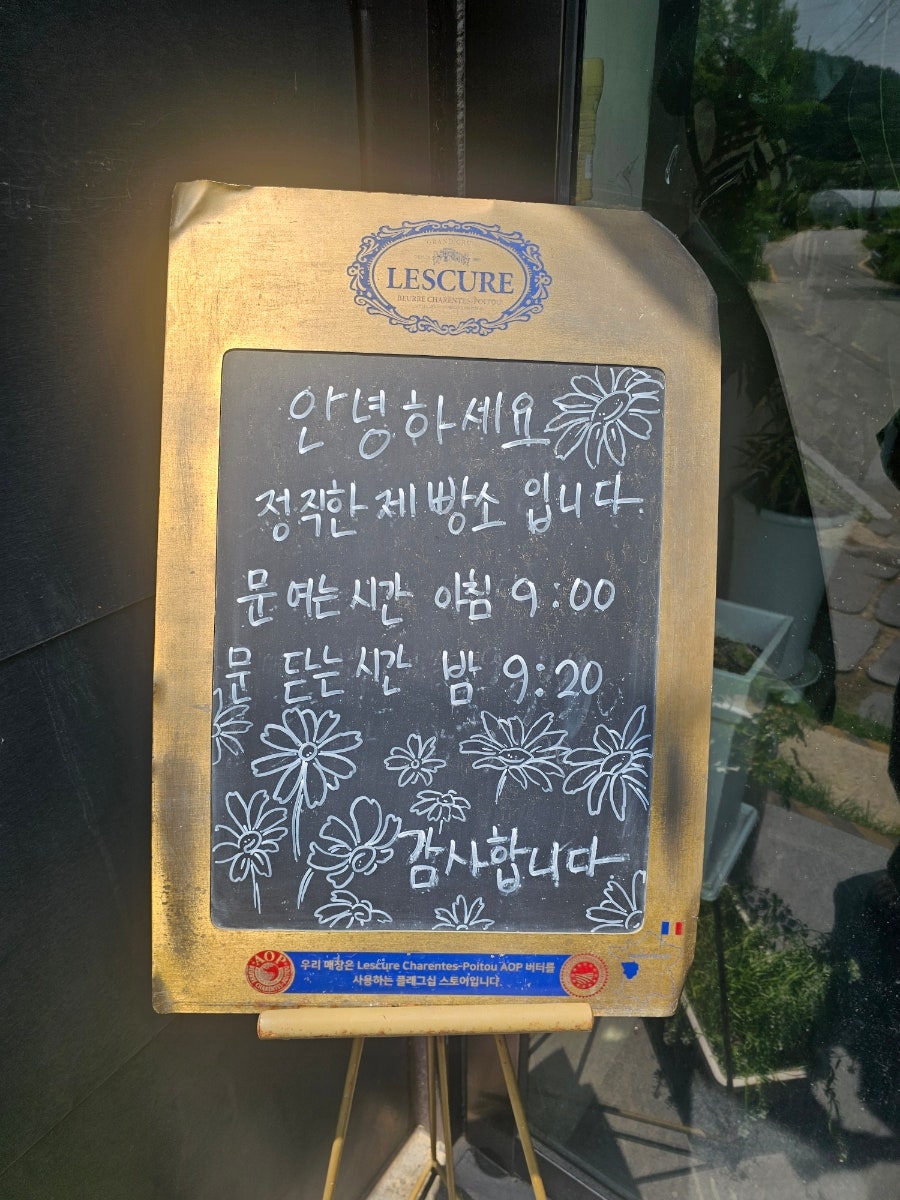 LESCURE
BEURRE CHARENTES-POITOU
안녕하세요
정직한 제빵소 입니다.
문 여는 시간 아침 9:00
문 닫는 시간 밤 9:20
감사합니다
AOP
우리 매장은 Lescure Charentes-Poitou AOP 버터를
사용하는 플래그십 스토어입니다.